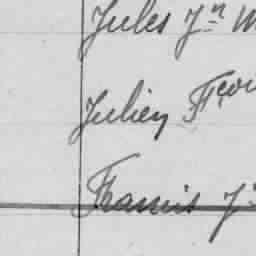 Jules Jn
Julien Fçoi
Francis J